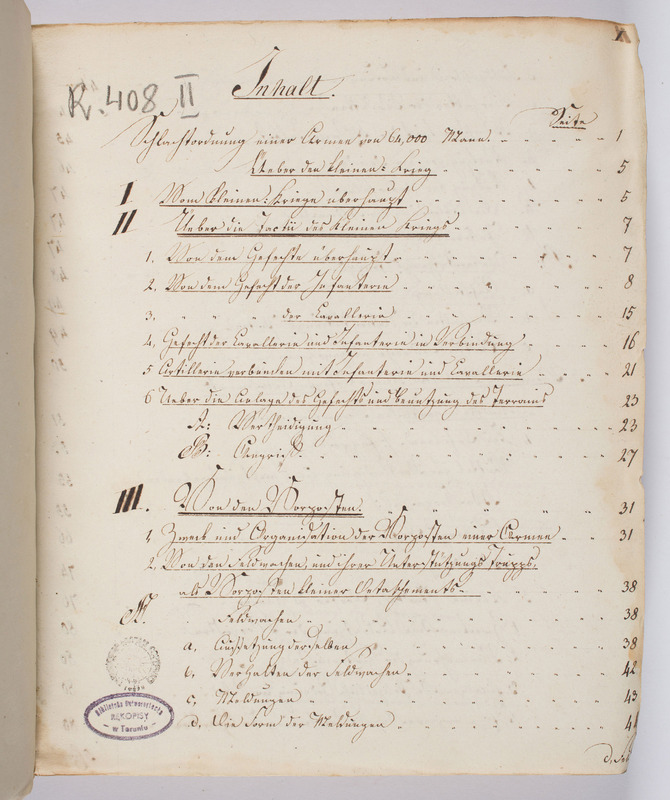 Inhalt.
R. 408 II
Seite
Schlachtordnung einer Armee von 64,000 Mann. 1
Ueber den kleinen Krieg 5
I Vom kleinen Kriege überhaupt 5
II Ueber die Tactik des kleinen Kriegs 7
1. Von dem Gefechte überhaupt 7
2. Von dem Gefecht der Infanterie 8
3. " " " der Cavallerie 15
4. Gefecht der Cavallerie und Infanterie in Verbindung 16
5 Artillerie verbunden mit Infanterie und Cavallerie 21
6 Ueber die Anlage des Gefechts und Benutzung des Terrains 23
A: Vertheidigung 23
B: Angriff. 27
III. Von den Vorposten. 31
1. Zweck und Organisation der Vorposten einer Armee 31
2. Von den Feldwachen, und ihrer Unterstützungs Trupps,
als Vorposten kleiner Detaschements 38
A. Feldwachen 38
a, Aussetzung derselben 38
b, Verhalten der Feldwachen 42
c, Meldungen 43
d. Die Form der Meldungen 4
Biblioteka Uniwersytecka
RĘKOPISY
w Toruniu